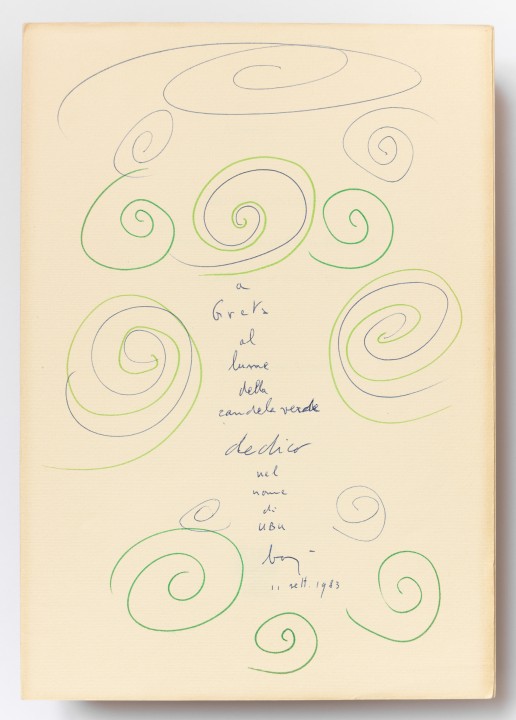 a
Greta
al
lume
della
candela verde
dedico
nel
nome
di
UBU
baj
11 sett. 1983